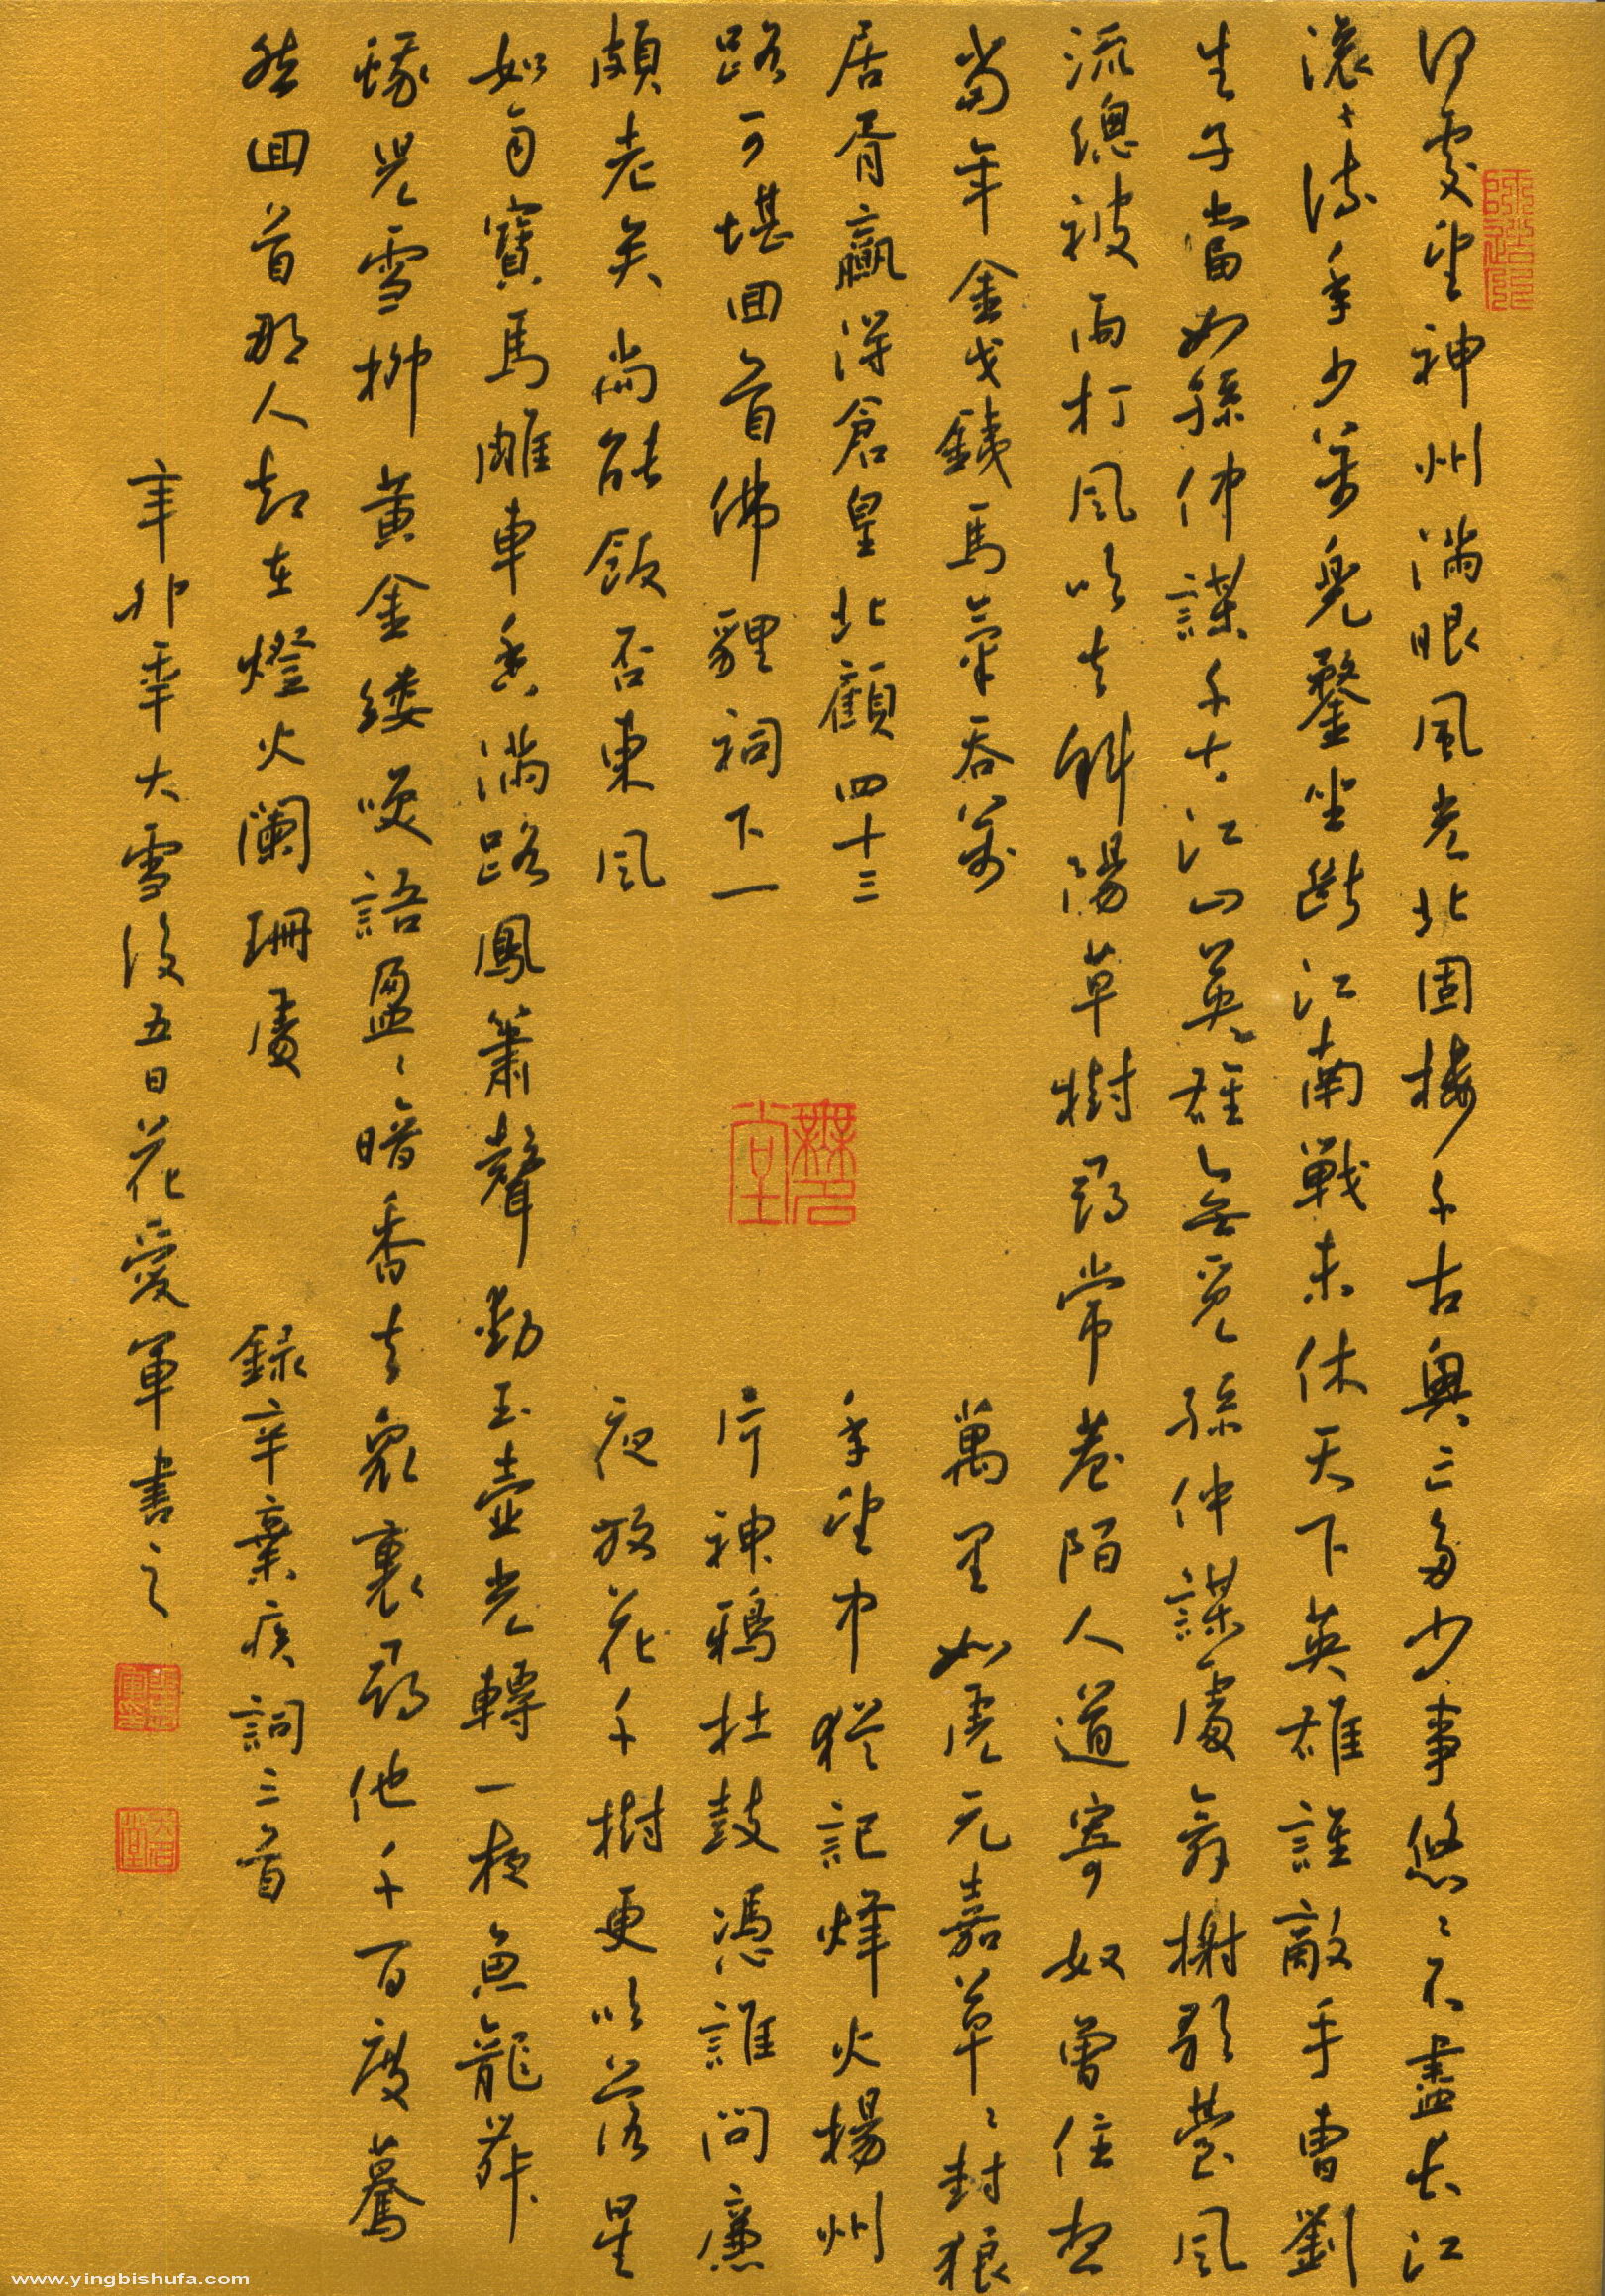 何處望神州滿眼風光北固樓千古興亡多少事悠〻不盡長江
滾〻流年少萬兜鍪坐斷江南戰未休天下英雄誰敵手曹劉
生子當如孫仲謀千古江山英雄無覓孫仲謀處舞榭歌臺風
流總被雨打風吹去斜陽草樹尋常巷陌人道寄奴曾住想
當年金戈鐵馬氣吞萬 萬里如虎元嘉草〻封狼
居胥贏得倉皇北顧四十三 年望中猶記烽火揚州
路可堪回首佛貍祠下一 片神鴉社鼓憑誰問廉
頗老矣尚能飯否東風 夜放花千樹更吹落星
如雨寶馬雕車香滿路鳳簫聲動玉壺光轉一夜魚龍舞
蛾兒雪柳黃金縷笑語盈〻暗香去衆裏尋他千百度驀
然回首那人却在燈火闌珊處 錄辛棄疾詞三首
辛卯年大雪後五日花愛軍書之
www.yingbishufa.com